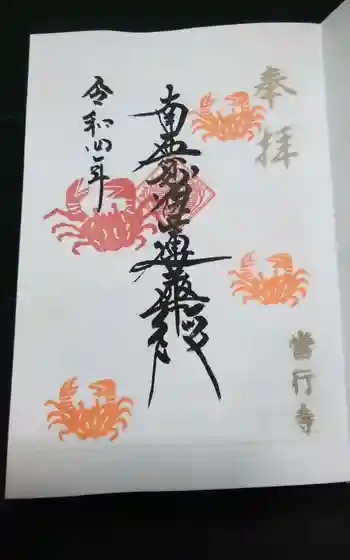 奉拝
南無妙法蓮華経
令和四年
當行寺